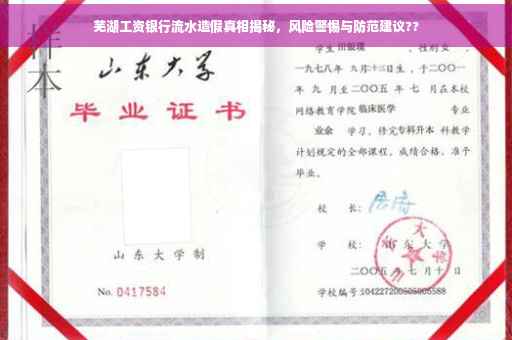 芜湖工资银行流水造假真相揭秘，风险警惕与防范建议??
样本
山东大学
毕业证书
山东大学制
No. 0417584
学生 性别女，
一九七八年 九月十三日生，于二〇〇一
年 九 月至二〇〇五 年 七 月在本校
网络教育学院 临床医学 专业
业余 学习，修完专科升本 科教学
计划规定的全部课程，成绩合格，准予
毕业。
校 长：
学 校：山东大学
二〇〇五年七月十日
学校编号: